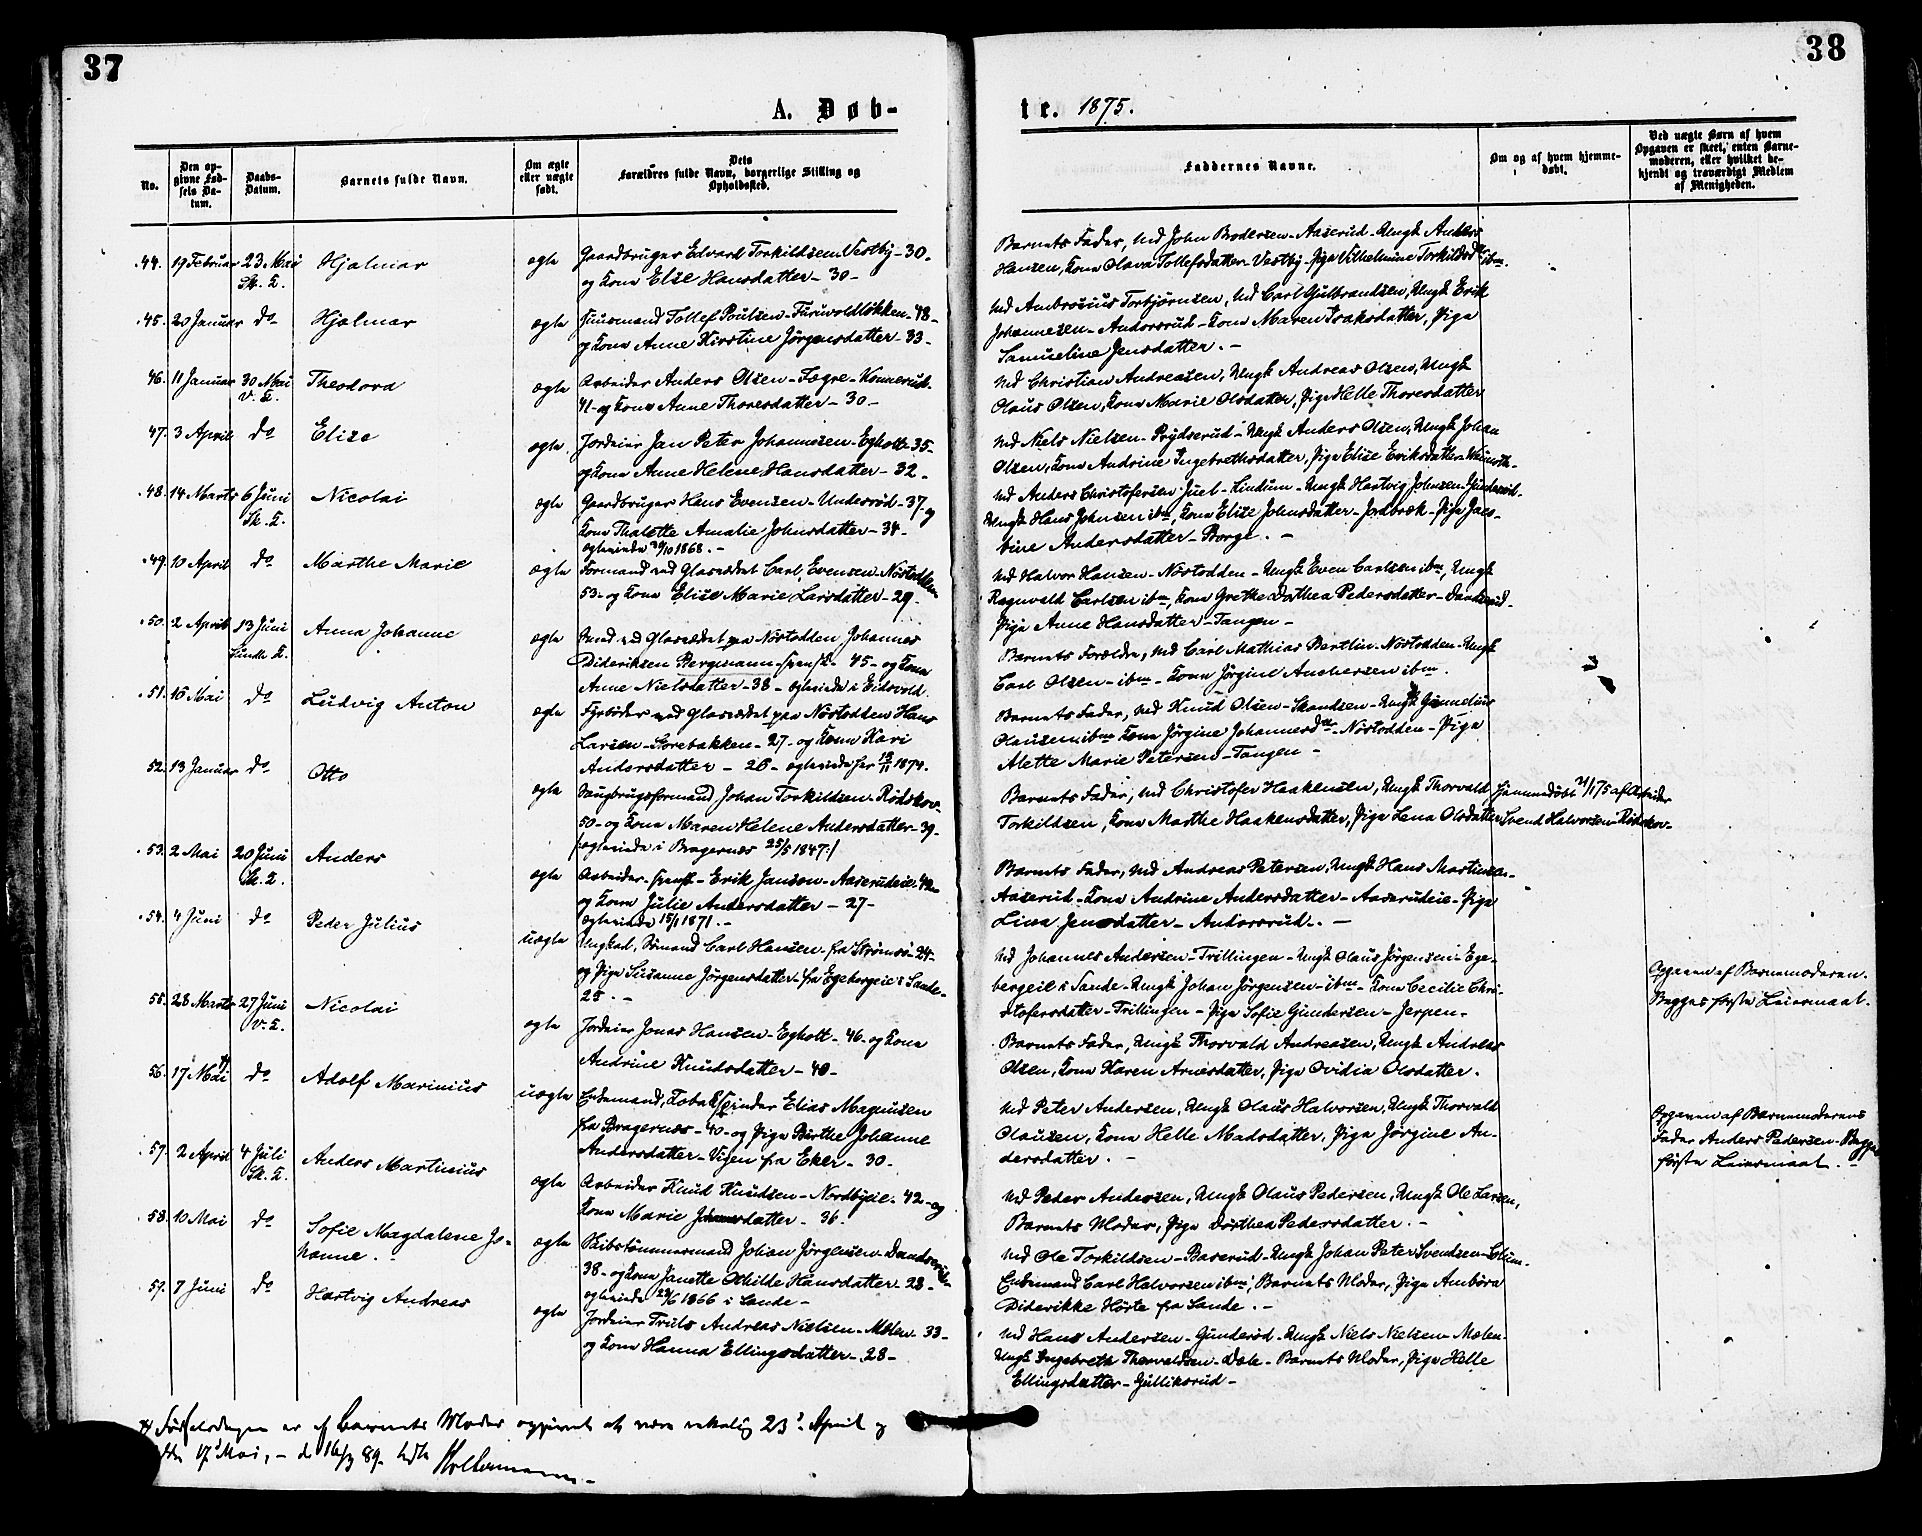 37
38
A. Døb-
te. 1875.
No.
Den op-
givne Fød-
sels Da-
tum.
Daabs-
Datum.
Barnets fulde Navn.
Om ægte
eller uægte
født.
Dets
Forældres fulde Navn, borgerlige Stilling og
Opholdssted.
Faddernes Navne.
Om og af hvem hjemme-
døbt.
Ved uægte Børn af hvem
Opgaven er skeet, enten Barne-
moderen, eller hvilket be-
kjendt og troværdigt Medlem
af Menigheden.
44. 19 Februar 23 Mai Hjalmar ægte Gaardbruger Edvard Torkildsen Vestby - 30 -
Sk. K.
og Kona Elise Hansdatter - 30 -
Barnets Fader, Md John Brodersen - Aaserud - Ungk Anders
Hansen, Kona Olava Tollefsdatter - Vestby - Pige Vilhelmine Torkildsdr ibm.
45. 20 Januar do Hjalmar ægte Huusmand Tollef Poulsen - Furuvoldløkken - 48 -
og Kona Anne Kirstine Jørgensdatter - 33 -
Md Ambrosius Torbjørnsen, Md Carl Gulbrandsen, Ungk Erik
Johannesen - Andorsrud - Kona Maren Isaksdatter, Pige
Samueline Jensdatter. -
46. 11 Januar 30 Mai Theodora ægte Arbeider Anders Olsen - Fægre - Konnerud -
V. K.
41 - og Kona Anne Thoresdatter - 30 -
Md Christian Andreasen, Ungk Andreas Olsen, Ungk
Olaus Olsen, Kona Marie Olsdatter, Pige Helle Thoresdatter
47. 3 April do Elise ægte Jordeier Jan Peter Johannesen - Egholt - 35 -
og Kona Anne Helene Hansdatter - 32 -
Md Niels Nielsen - Prydserud - Ungk Anders Olsen, Ungk Johan
Olsen, Kona Andrine Ingebrethsdatter, Pige Elise Eriksdatter
48. 14 Marts 6 Juni Nicolai ægte Gaardbruger Hans Evensen - Undersrød - 37 - og
Sk. K.
Kona Thalette Amalie Johnsdatter - 34 -
ægteviede 1868. -
Md Anders Christofersen Juel - Lindum - Ungk Hartvig Johnsen - Gunderød -
Ungk Hans Johnsen ibm, Kona Elise Johnsdatter - Jordbræk - Pige Jaco-
bine Andersdatter - Borge. -
49. 10 April do Marthe Marie ægte Formand ved Glasværket Carl Evensen - Nøstodden
53 - og Kona Elise Marie Larsdatter - 29 -
Md Halvor Hansen - Nøstodden - Ungk Even Carlsen ibm, Ungk
Ragnvald Carlsen ibm, Kona Grethe Dorthea Pedersdatter - Dandserud -
Pige Anne Hansdatter - Tangen -
50. 2 April 13 Juni Anna Johanne ægte Svend ved Glasværket paa Nøstodden Johannes
Sande K.
Dideriksen Bergmann - svensk - 45 - og Kona
Anne Nielsdatter - 38 - ægteviede i Eidsvold.
Barnets Forældre, Md Carl Mathias Berlin - Nøstodden - Ungk
Carl Olsen - ibm - Kona Jørgine Andersen ibm.
51. 16 Mai do Ludvig Anton ægte Fyrbøder ved Glasværket paa Nøstodden Hans
Larsen - Gorebakken - 27 - og Kona Kari
Andersdatter - 26 - ægteviede her 1874.
Barnets Fader, Md Knud Olsen - Skandsen - Ungk Gunnelius
Olausen ibm Kona Jørgine Johannesdr - Nøstodden - Pige
Alette Marie Petersen - Tangen -
52. 13 Januar do Otto ægte Saugbrugsformand Johan Torkildsen - Rødskov -
50 - og Kona Maren Helene Andersdatter - 39 -
/: ægteviede i Bragernæs 25/5 1847 :/
Barnets Fader, Md Christofer Haakensen, Ungk Thorvald
Torkildsen, Kona Marthe Haakensdatter, Pige Lena Olsdatter
Hjemmedøbt 21/1 75 af Arbeider
Svend Halvorsen - Rødskov -
53. 2 Mai 20 Juni Anders ægte Arbeider - svensk - Erik Janson - Aaserudeie - 42 -
Sk. K.
og Kona Julie Andersdatter - 27 -
ægteviede 15/1 1871. -
Barnets Fader, Md Andreas Petersen, Ungk Hans Martinsen -
Aaserud - Kona Andrine Andersdatter - Aaserudeie - Pige
Lina Jensdatter - Andorsrud. -
54. 4 Juni do Peder Julius uægte Ungkarl, Sømand Carl Hansen - fra Strømsø - 24 -
og Pige Susanne Jørgensdatter - fra Egebergeie i Sande -
25. -
Md Johannes Andersen - Trillingen - Ungk Olaus Jørgensen - Ege-
bergeie i Sande - Ungk Johan Jørgensen - ibm - Kona Cecilie Chri-
stofersdatter - Trillingen - Pige Sofie Gundersen - Jerpen -
Opgaven af Barnemoderen.
Begges første Leiermaal.
55. 28 Marts 27 Juni Nicolai ægte Jordeier Jonas Hansen - Egholt - 46 - og Kona
V. K.
Andrine Knudsdatter - 40 -
Barnets Fader, Ungk Thorvald Andreasen, Ungk Andreas
Olsen, Kona Karen Arnesdatter, Pige Ovidia Olsdatter.
56. 17 Mai do Adolf Marinius uægte Enkemand, Tobakspinder Elias Magnusen
fra Bragernæs - 40 - og Pige Birthe Johanne
Andersdatter - Vigen fra Eker - 30 -
Md Peter Andersen, Ungk Olaus Halvorsen, Ungk Thorvald
Olausen, Kona Helle Madsdatter, Pige Jørgine An-
dersdatter. -
Opgaven af Barnemoderens
Fader Anders Pedersen - Begges
første Leiermaal. -
57. 2 April 4 Juli Anders Martinius ægte Arbeider Knud Knudsen - Nordbyeie - 42 - og
Sk. K.
Kona Marie Johannesdatter - 36.
Md Peder Andersen, Ungk Olaus Pedersen, Ungk Ole Larsen,
Barnets Moder, Pige Dorthea Pedersdatter. -
58. 10 Mai do Sofie Magdalene Jo-
hanne. - ægte Skibstømmermand Johan Jørgensen - Dandserud -
38 - og Kona Janette Othilde Hansdatter - 28 -
ægteviede 1866 i Sande -
Md Ole Torkildsen - Baserud - Ungk Johan Peter Svendsen -
Enkemand Carl Halvorsen ibm, Barnets Moder, Pige Ambøra
Diderikke Hørte fra Sande. -
59. 7 Juni do Hartvig Andreas ægte Jordeier Truls Andreas Nielsen - Mælen - 33 -
og Kona Hanna Ellingsdatter - 28 -
Md Hans Andersen - Gunderød - Ungk Niels Nielsen - Mælen -
Ungk Ingebreth Thorvaldsen - Dale - Barnets Moder, Pige Helle
Ellingsdatter - Gulliksrud -
Fødselsdagen er af Barnets Moder opgivet at være rettelig 23de April og
ikke 17 Mai, - d 89.